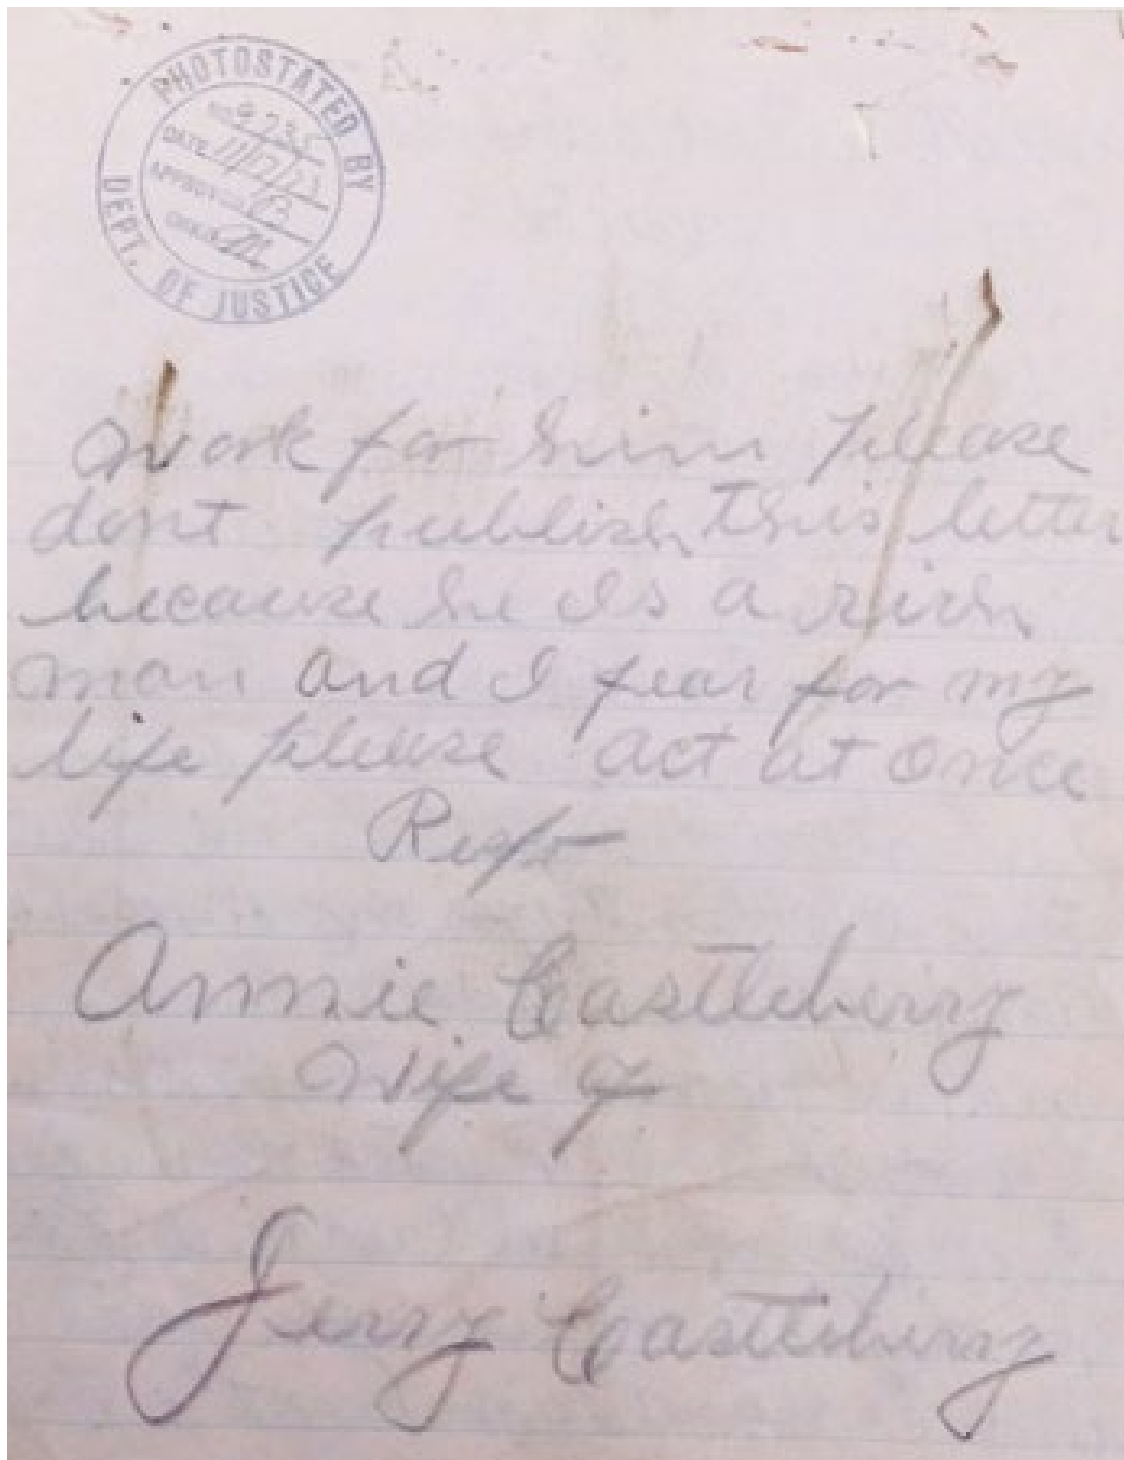 PHOTOSTATED BY
DEPT. OF JUSTICE
No. 9235
DATE 11/17/23
APPROVED
work for him please
dont publish this letter
because he Is a rich
man and I fear for my
life please act at once
Resp
Annie Castleberry
Wife of
Jerry Castleberry